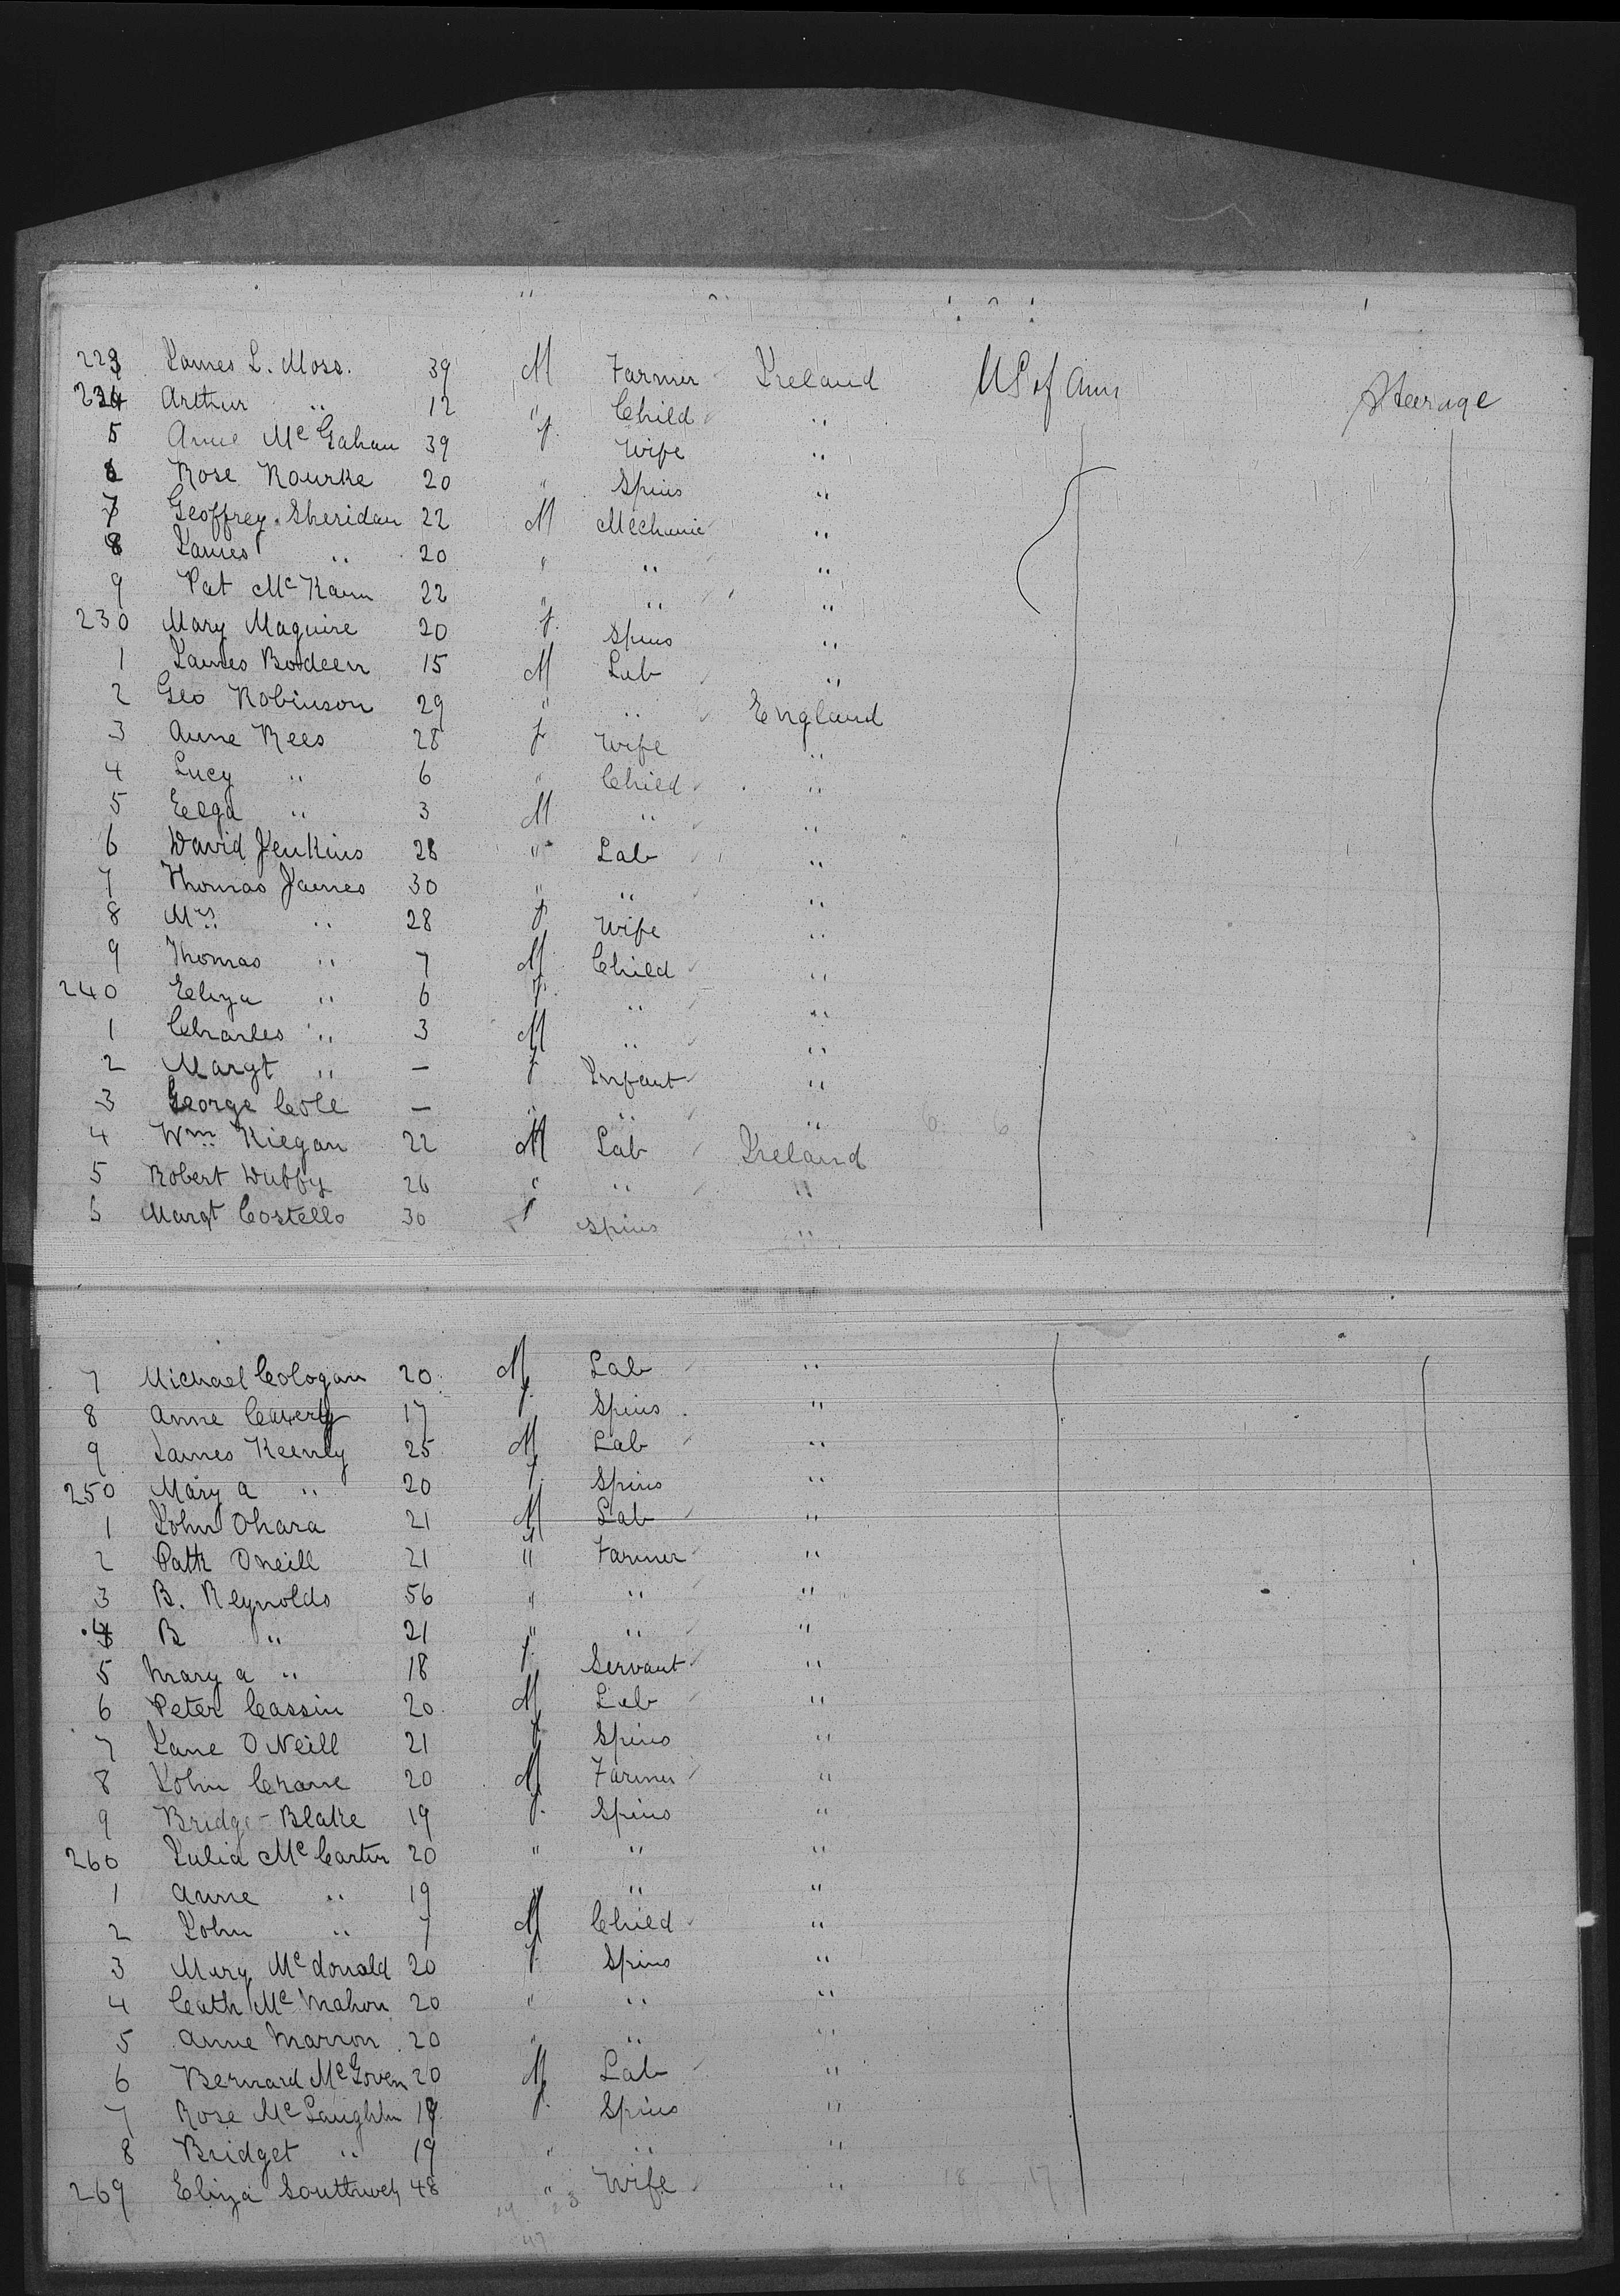 223 James L. Moss. 39 M Farmer Ireland US of Am Steerage
224 Arthur " 12 " Child "
5 Anne McGahan 39 f. Wife "
6 Rose Rourke 20 " Spins "
7 Geoffrey Sheridan 22 M Mechanic "
8 James " 20 " " "
9 Pat McKann 22 " " "
230 Mary Maguire 20 f. Spins "
1 James Bodeen 15 M Lab "
2 Geo Robinson 29 " " England
3 Anne Rees 28 f Wife "
4 Lucy " 6 " Child "
5 " 3 M " "
6 David Jenkins 28 " Lab "
7 Thomas James 30 " " "
8 Mrs " 28 f Wife "
9 Thomas " 7 M Child "
240 Eliza " 6 f. " "
1 Charles " 3 M " "
2 Margt " — f Infant "
3 George Cole — " " "
4 Wm Kiegan 22 M Lab Ireland
5 Robert Duffy 26 " " "
6 Margt Costello 30 f Spins "
7 Michael Cologan 20 M Lab "
8 Anne 17 f. Spins "
9 James Keenly 25 M Lab "
250 Mary a " 20 f. Spins "
1 John Ohara 21 M Lab "
2 Patk Oneill 21 " Farmer "
3 B. Reynolds 56 " " "
4 B " 21 " " "
5 Mary a " 18 f. Servant "
6 Peter Cassin 20 M Lab "
7 Jane O Neill 21 f Spins "
8 John Crane 20 M Farmer "
9 Bridgt Blake 19 f. Spins "
260 Julia McCartin 20 " " "
1 Anne " 19 " " "
2 John " 7 M Child "
3 Mary Mcdonald 20 f. Spins "
4 Cath McMahon 20 " " "
5 Anne Marron 20 " " "
6 Bernard McGovern 20 M Lab "
7 Rose McLaughlin 19 f. Spins "
8 Bridget " 19 " " "
269 Eliza Southwell 48 " Wife "